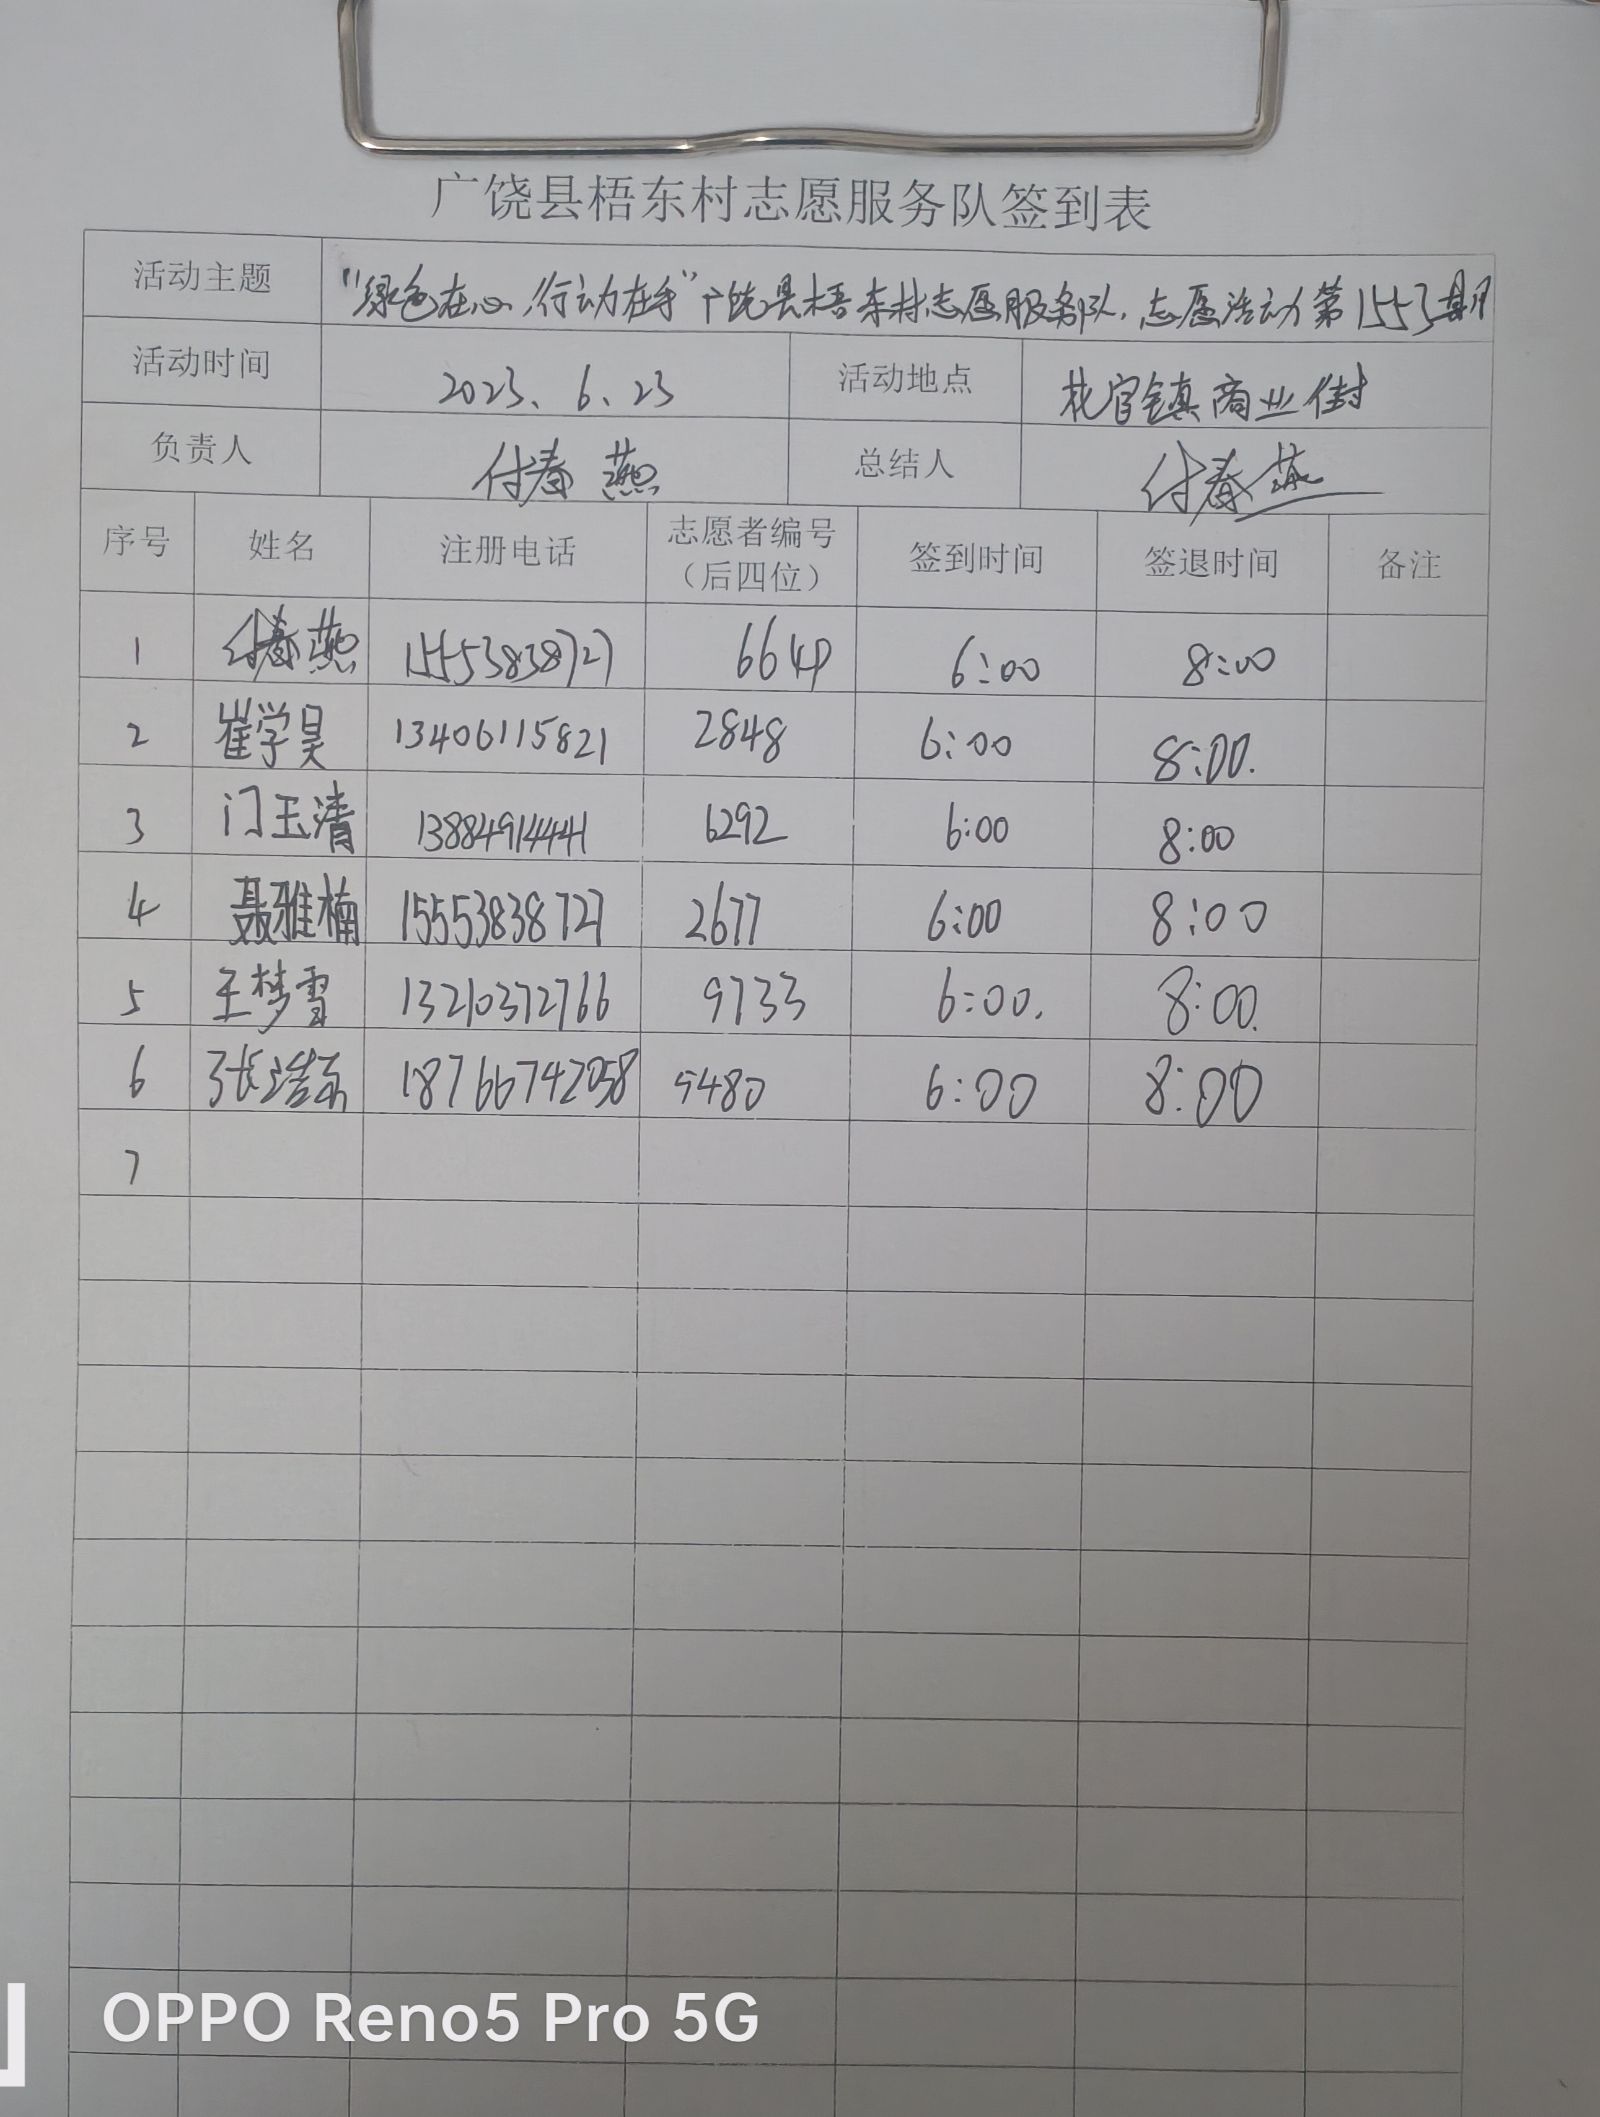 广饶县梧东村志愿服务队签到表
活动主题 "绿色在心,行动在手"广饶县梧东村志愿服务队,志愿活动第1553期
活动时间 2023、6、23 活动地点 花官镇商业街
负责人 付春燕 总结人 付春燕
序号 姓名 注册电话 志愿者编号 签到时间 签退时间 备注
（后四位）
1 付春燕 15553838727 6649 6:00 8:00
2 崔学昊 13406115821 2848 6:00 8:00.
3 门玉清 13884914441 6292 6:00 8:00
4 聂雅楠 15553838727 2677 6:00 8:00
5 王梦雪 13210372766 9733 6:00. 8:00.
6 张浩 18766742058 5480 6:00 8:00
7
OPPO Reno5 Pro 5G